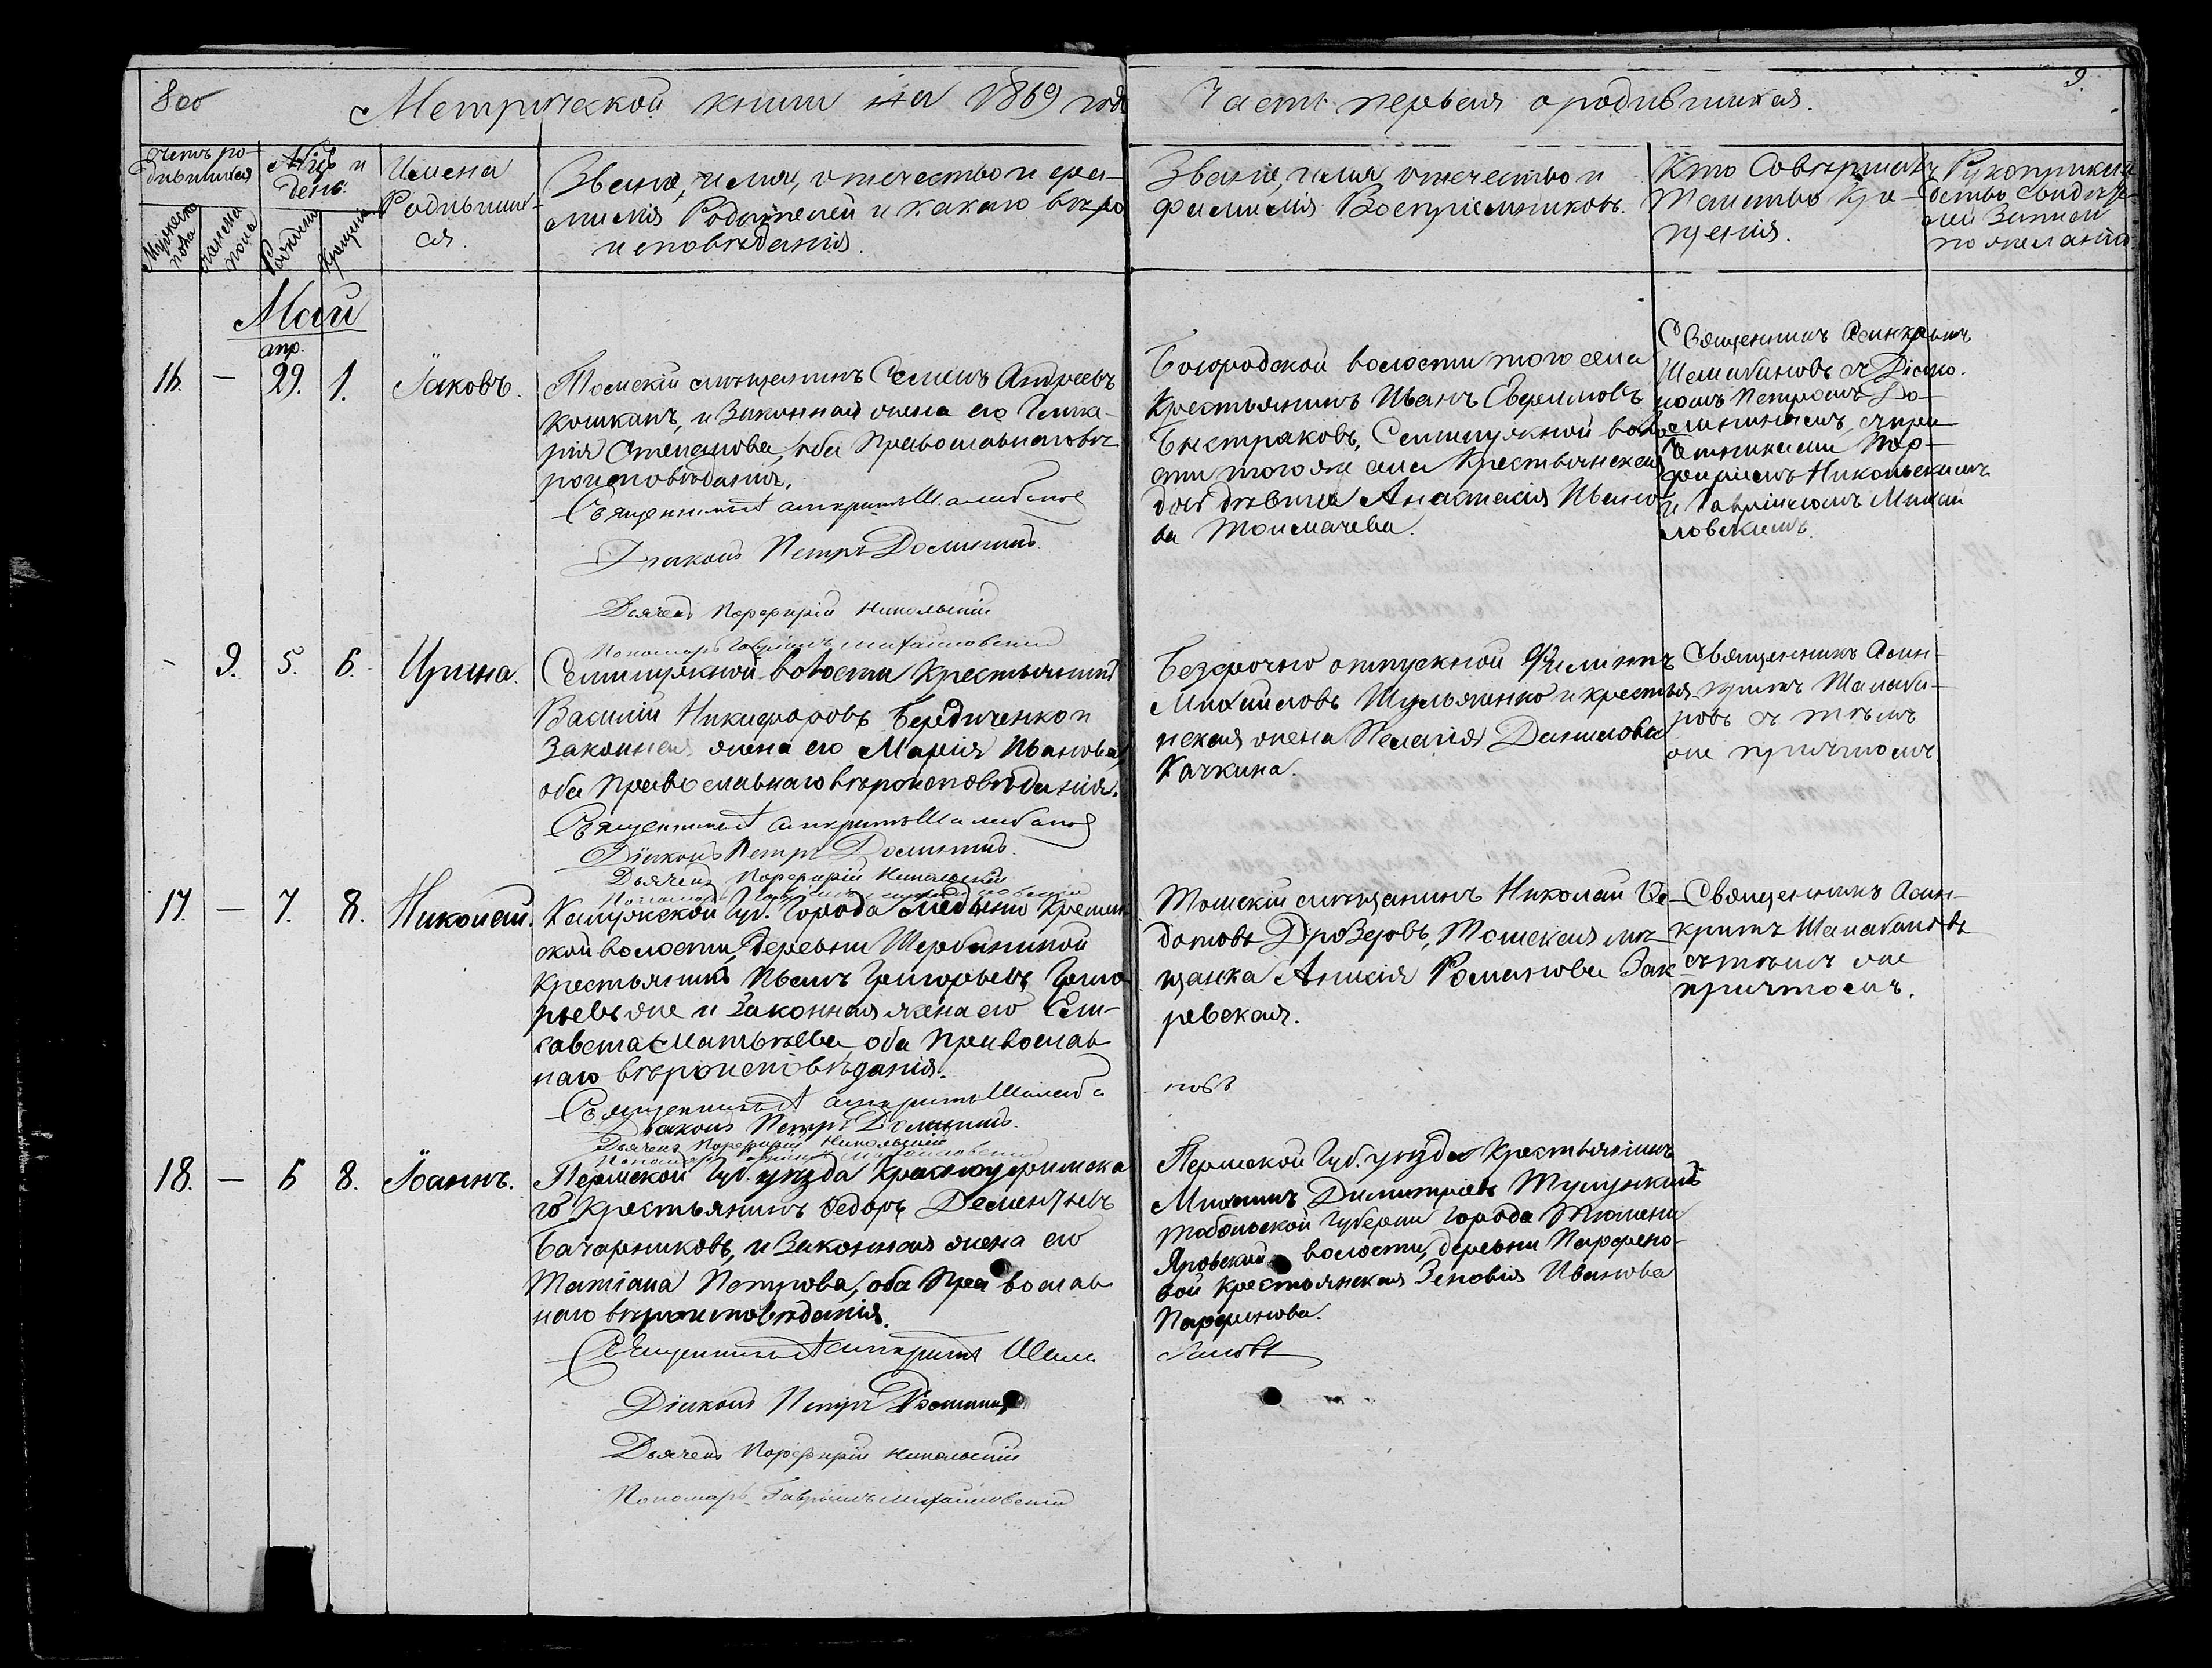 Метрической книги на 1869 годъ
Часть первая о родившихся.
9.
счетъ родившихся
Мужеска пола
женска пола
Мѣсяцъ и день.
Рожденія
Крещенія
Имена
Родившихся.
Званіе, имя, отечество и фа-
милія Родителей и какаго вѣро
исповѣданія.
Званіе, имя отечество и
фамилія Воспріемниковъ.
Кто Совершалъ
Таинство Кре-
щенія.
Рукоприклад
ство Свидѣте-
лей Записи
по желанію
Май
апр.
16. — 29. 1. Іаковъ.
Томскій мѣщанинъ Семенъ Андреевъ
Кошкинъ, и Законная жена его Глике-
рія Степанова, оба Православнаго вѣ-
роисповѣданія.
Священникъ Асинкритъ Шалабановъ
Діаконъ Петръ Домининъ.
Дьячекъ Порфирій Никольскій
Пономарь Гавріилъ Михайловскій
Богородской волости того села
Крестьянинъ Иванъ Ефремовъ
Быстраковъ, Семилужной воло-
сти того же села Крестьянская
дочь дѣвица Анастасія Ивано-
ва Толмачева.
Священникъ Асинкритъ
Шалабановъ съ Діако-
номъ Петромъ До-
мининымъ, съ при-
четниками Пор-
фиріемъ Никольскимъ
и Гавріиломъ Михай
ловскимъ.
- 9. 5. 6. Ирина.
Семилужной волости Крестьянинъ
Василій Никифоровъ Бердиченко и
Законная жена его Марія Иванова,
оба Православнаго вѣроисповѣданія.
Священникъ Асинкритъ Шалабановъ
Діаконъ Петръ Домининъ.
Дьячекъ Порфирій Никольскій
Пономарь Гавріилъ Михайловскій
Безсрочно отпускной Филиппъ
Михайловъ Шульженко и крестья
нская жена Пелагія Данилова
Качкина.
Священникъ Асин-
критъ Шалаба-
новъ съ тѣмъ
же причтомъ
17. — 7. 8. Николай.
Калужской Губ. Города Медыни Кремен
ской волости, Деревни Щербининой
Крестьянинъ Иванъ Григорьевъ Григо
рьевъ же и Законная жена его Ели-
савета Матвѣева, оба Православ
наго вѣроисповѣданія.
Священникъ Асинкритъ Шалаба
новъ
Діаконъ Петръ Домининъ.
Дьячекъ Порфирій Никольскій
Пономарь Гавріилъ Михайловскій
Томскій мѣщанинъ Николай Ѳе-
дотовъ Дрозеровъ, Томская мѣ-
щанка Анисія Романова Зак
ревская.
Священникъ Асин-
критъ Шалабановъ
съ тѣмъ же
причтомъ.
18. — 6 8. Іоаннъ.
Пермской Губ. уѣзда Красноуфимска
го Крестьянинъ Ѳедоръ Дементьевъ
Бачарниковъ, и Законная жена его
Татіана Петрова, оба Православ
наго вѣроисповѣданія.
Священникъ Асинкритъ Шала
бановъ
Діаконъ Петръ Доминин
Дьячекъ Порфирій Никольскій
Пономарь Гавріилъ Михайловскій
Пермской Губ. уѣзда Крестьянинъ
Михаилъ Димитріевъ
Тобольской Губерніи Города Тюмени
волости, деревни Парфено-
вой Крестьянская Зеновія Иванова
Парфенова.